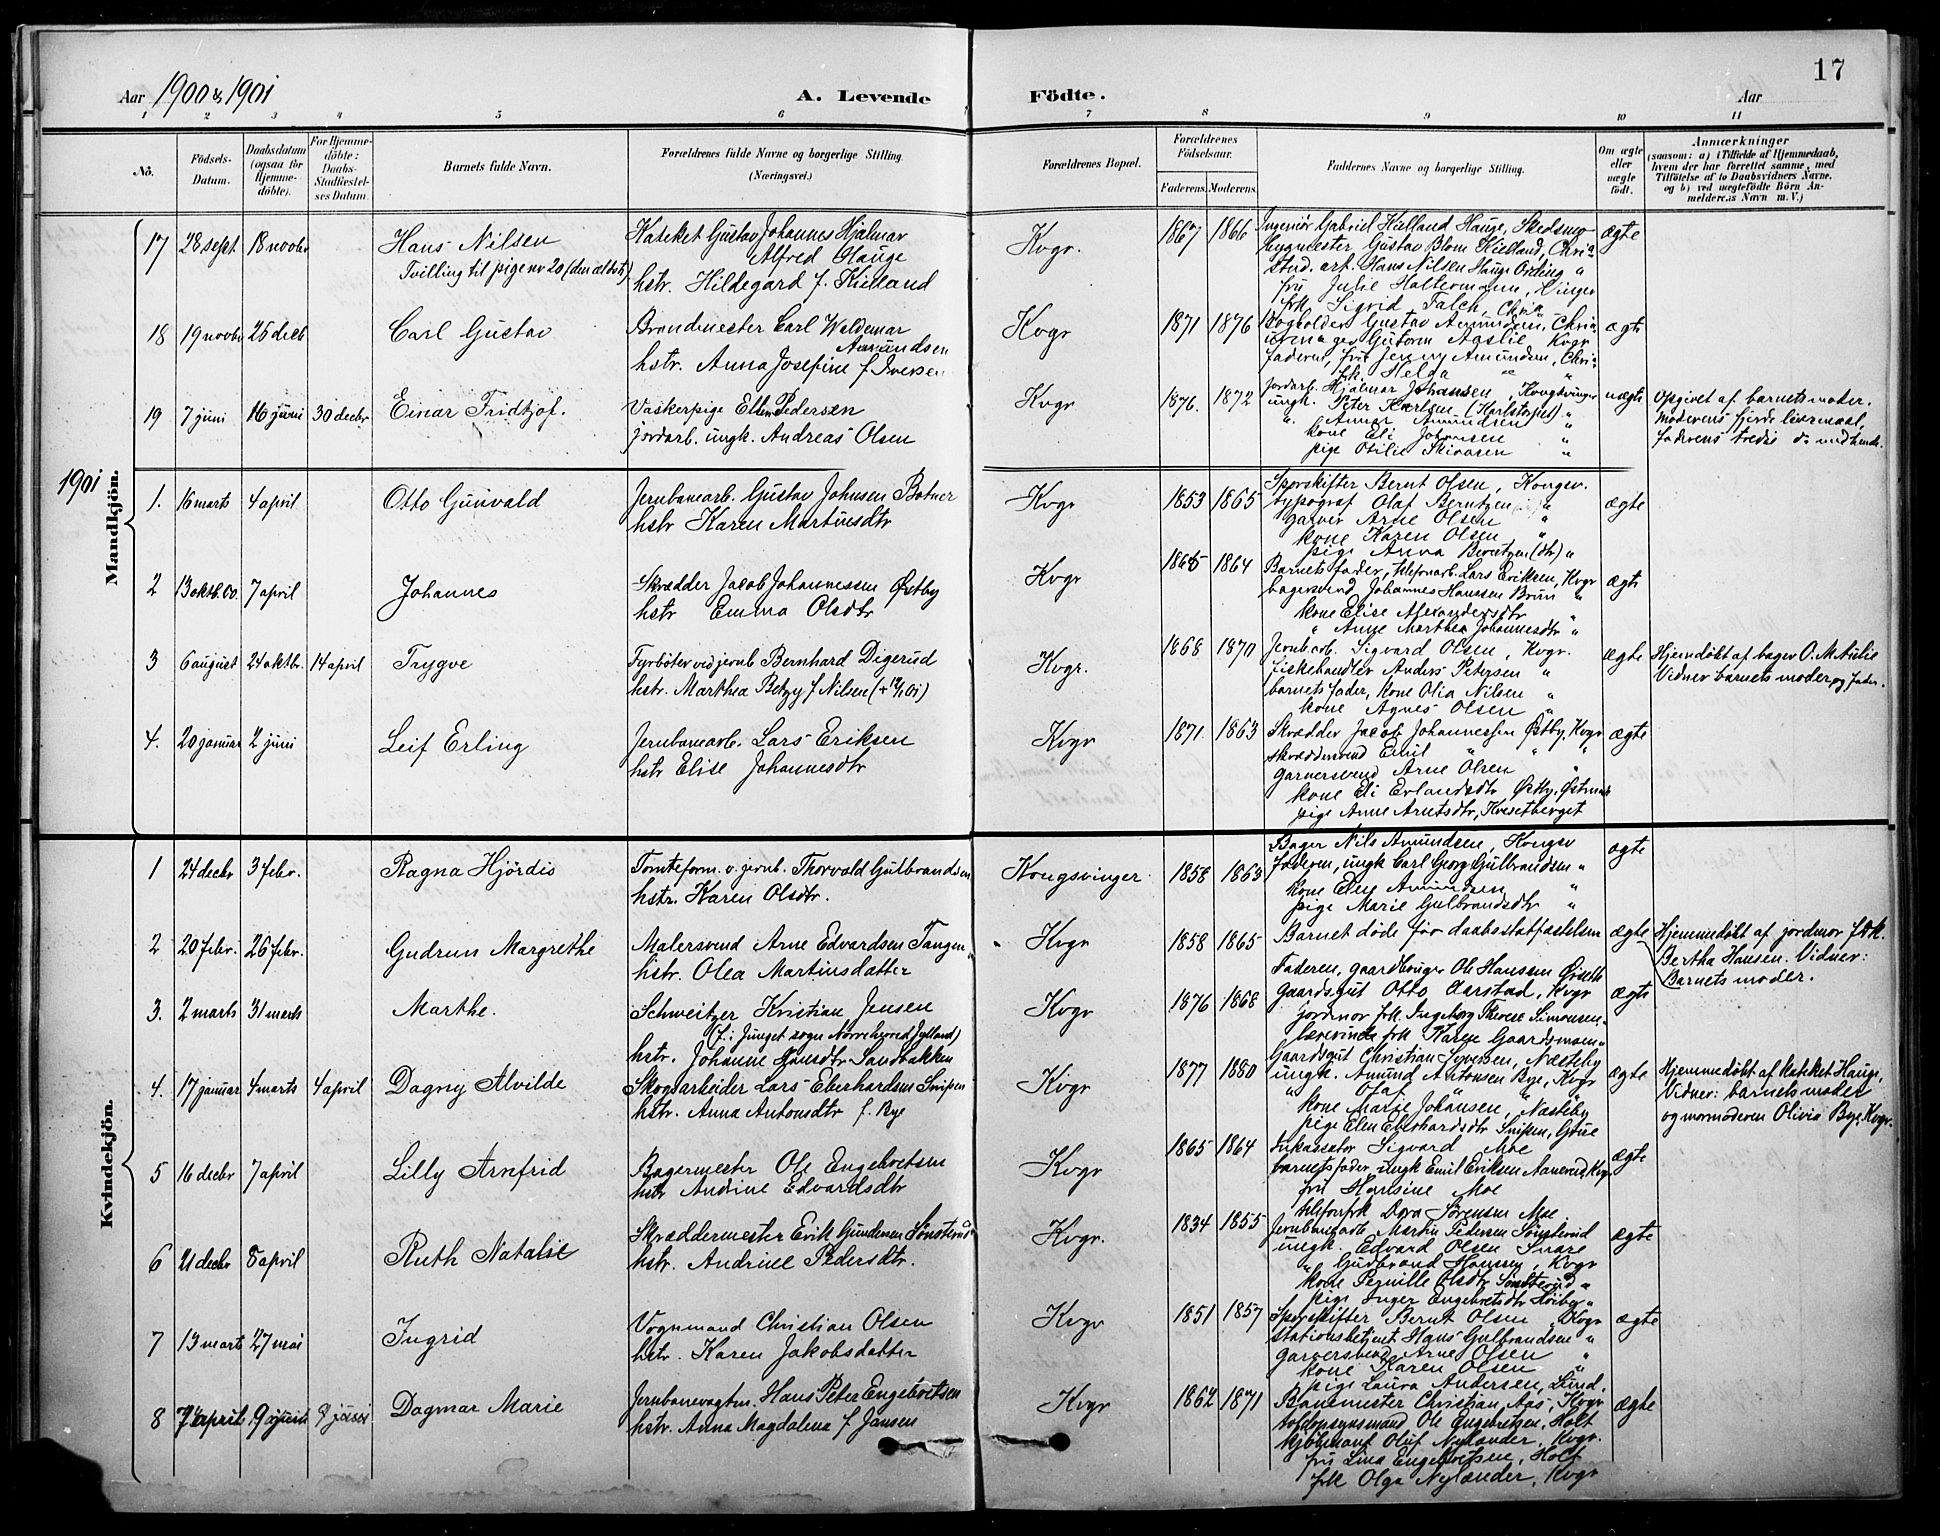 17
Aar 1900 & 1901
A. Levende Födte.
Aar
1 2 3 4 5 6 7 8 9 10 11
No.
Födsels-Datum.
Daabsdatum (ogsaa för Hjemmedöbte).
For Hjemmedöbte: Daabs-Stadfæstelses Datum.
Barnets fulde Navn.
Forældrenes fulde Navne og borgerlige Stilling.
(Næringsvei.)
Forældrenes Bopæl.
Forældrenes Födselsaar.
Faderens. Moderens.
Faddernes Navne og borgerlige Stilling.
Om ægte eller uægte födt.
Anmærkninger
(saasom: a) i Tilfælde af Hjemmedaab,
hvem der har forrettet samme, med
Tilföielse af to Daabsvidners Navne,
og b) ved uægtefödte Börn Anmelderens Navn m. V.)
17 28 sept 18 novbr Hans Nilsen
Tvilling til pige nr 20 (den ældste)
Kateket Gustav Johannes Hjalmar
Alfred Hauge
hstr. Hildegard f. Kielland
Kvgr. 1867 1866
Ingeniör Gabriel Kielland Hauge, Skedsmo
bygmester Gustav Blom Kielland, Chria
stud. art. Hans Nilsen Hauge Ording "
fru Julie Haltermann, Vinger
frk. Sigrid Falch, Chria
ægte
18 19 novbr 26 decb Carl Gustav
Brandmester Carl Waldemar
Amundsen
hstr. Anna Josefine f. Iversen
Kvgr 1871 1876
Bogholder Gustav Amundsen, Chria
urmager Gutorm Aaslie Kvgr
faderen, fru Jenny Amundsen, Chria
frk. Helga " "
ægte
19 7 juni 16 juni 30 decbr Einar Fridtjof.
Vaskerpige Ellen Pedersen
jordarb. ungk. Andreas Olsen
Kvgr 1876. 1872
Jordarb. Hjalmar Johansen, Kongsvinger
ungk. Peter Karlsen (Karlstorpet) "
" Anner Amundsen "
kone Eli Johansen "
pige Otilie Skivaren "
uægte
Opgivet af barnets moder.
Moderens fjerde leiermaal,
faderens tredie do med hende.
1901
Mandkjön.
1. 16 marts 4 april Otto Gunvald
Jernbanearb. Gustav Johnsen Botner
hstr Karen Martinsdtr
Kvgr 1853 1865
Sporskifter Bernt Olsen, Kongsv.
typograf Olaf Berntzen "
garver Arne Olsen "
kone Karen Olsen "
pige Anna Berntzen (dtr) "
ægte
2 13 oktb. 00 7 april Johannes
Skrædder Jacob Johannessen Østby
hstr Emma Olsdtr
Kvgr 1865 1864
Barnets fader, telefonarb. Lars Eriksen, Kvgr
bagersvend Johannes Hanssen Bruun "
kone Elise Alexandersdtr "
" Anne Marthea Johannesdtr "
ægte
3 6 august 24 oktbr. 14 april Trygve
Fyrböter ved jernb Bernhard Digerud
hstr. Marthea Betzy f Nilsen (+ 12/1 01)
Kvgr. 1868 1870
Jernb.arb. Sigvard Olsen, Kvgr.
fiskehandler Anders Petersen "
barnets fader, kone Olia Nilsen "
kone Agnes Olsen "
ægte
Hjemdöbt af bager O. M. Aulie
Vidner barnets moder og fader.
4. 20 januar 2 juni Leif Erling
Jernbanearb. Lars Eriksen
hstr Elise Johannesdtr
Kvgr 1871 1863
Skrædder Jacob Johannessen Østby, Kvgr
skræddersvend Emil " " "
garversvend Arne Olsen "
kone Eli Erlandsdtr Østby,
pige Anne Arntsdtr,
ægte
Kvindekjön.
1 24 decbr 3 febr. Ragna Hjördis
Tomteform. v. jernb. Thorvald Gulbrandsen
hstr. Karen Olsdtr.
Kongsvinger 1858 1863
Bager Nils Amundsen, Kongsv
Faderen, ungk Carl Georg Gulbrandsen "
kone Elen Amundsen "
pige Marie Gulbrandsdtr "
ægte
2 20 febr. 26 febr. Gudrun Margrethe
Malersvend Arne Edvardsen Tangen
hstr. Olea Martinsdatter
Kvgr 1858 1865
Barnet döde för daabsstadfæstelsen
ægte
Hjemmedöbt af jordmor frk.
Bertha Hansen. Vidner:
Barnets moder.
3. 2 marts 31 marts Marthe.
Schweitzer Kristian Jensen
(f. i Junget sogn Nørreherred Jylland)
hstr. Johanne Hansdtr Sandbakken
Kvgr 1876 1868
Faderen, gaardbruger Ole Hanssen
gaardsgut Otto Aarstad, Kvgr
jordmor frk. Ingeborg Therese Simonsen "
lærerinde frk Karen Gaardsmoen "
ægte
4. 17 januar 4 marts 4 april Dagny Alvilde
Skogsarbeider Lars Eberhardsen Snipen
hstr. Anna Antonsdtr f. Bye
Kvgr 1877 1880
Gaardsgut Christian Syversen, Næsteby
ungk. Amund Antonsen Bye, Kvgr
" Olaf " " "
kone Marie Johansen, Næsteby
pige Elen Eberhardsdtr Snipen, Grue
ægte
Hjemmedöbt af kateket Hauge,
Vidner: barnets moder
og mormoderen Olivia Bye, Kvgr.
5 16 decbr 7 april Lilly Arnfrid
Bagermester Ole Engebretsen
hstr Andrine Edvardsdtr
Kvgr 1865 1864
Inkassator Sigvard Moe
barnets fader, ungk Emil Eriksen Aanerud, Kvgr
fru Hansine Moe
telefonfrk Dora Sörensen Moe
ægte
6 21 decbr 8 april Ruth Natalie
Skræddermester Erik Gundersen Sönsterud
hstr. Andrine Pedersdtr.
Kvgr. 1834 1855
Jernbanearb Martin Pedersen Sönsterud
ungk. Edvard Olsen Snare
" Gudbrand Hanssen, Kvgr
kone Pernille Olsdtr Sönsterud "
pige Inger Engebretsdtr "
ægte
7 13 marts 27 mai Ingrid
Vognmand Christian Olsen
hstr. Karen Jakobsdatter
Kvgr 1851 1857
Sporskifter Bernt Olsen Kvgr
stationsbetjent Hans Gulbrandsen "
garversvend Arne Olsen "
kone Karen Olsen "
pige Laura Andersen,
ægte
8 7 april 9 juni 9 juni Dagmar Marie
Jernbanevogtm. Hans Peter Engebretsen
hstr. Anna Magdalena f Jansen
Kvgr 1862 1871
Banemester Christian Aas, Kvgr
toldopsynsmand Ole Engebretsen, Holt
kjöbmand Oluf Nylander, Kvgr.
fru Lina Engebretsen, Holt
frk Olga Nylander, Kvgr
ægte